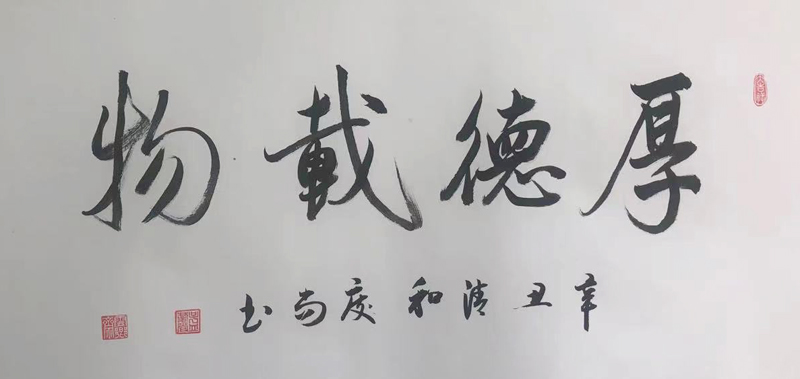 厚德載物
辛丑清和度尚书